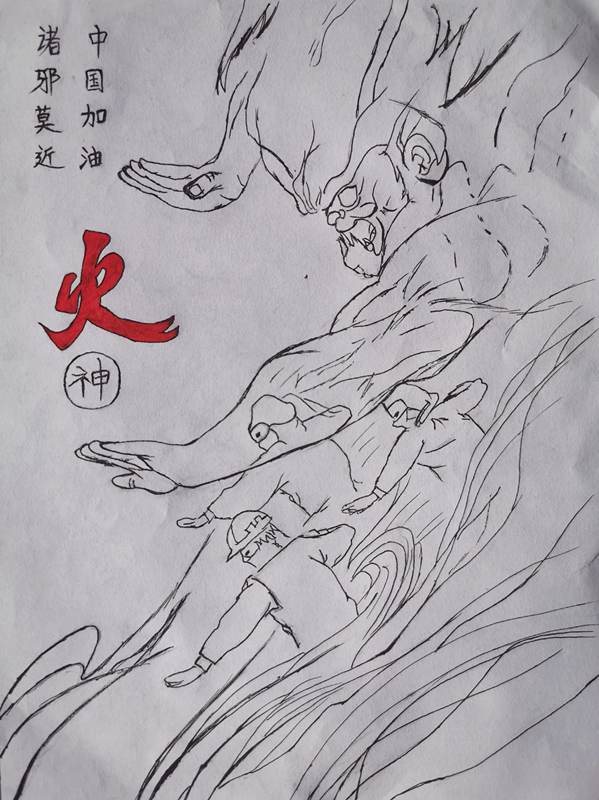 中国加油
诸邪莫近
火
神